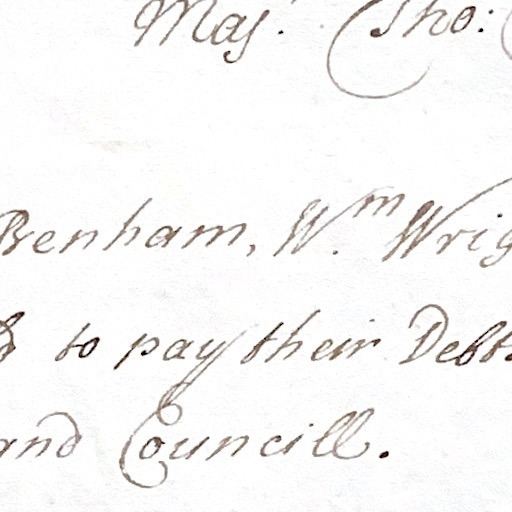 Maj. Tho:
Benham, W.m Wrig
to pay their Debts
and Councill.